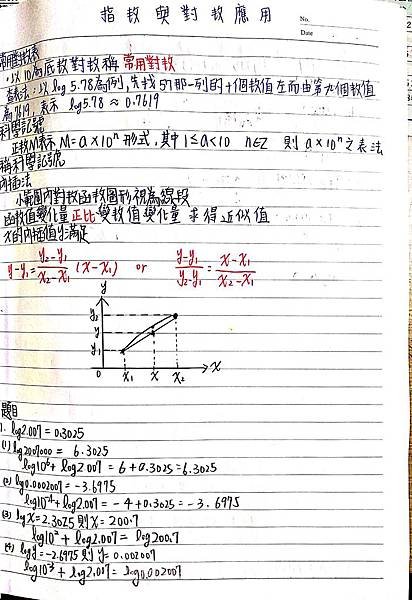 指數與對數應用
No.
Date
常用對數表
·以10為底數對數稱 常用對數
查表法:以log 5.78為例,先找57那一列的十個數值左而由第九個數值
為7619 表示 log5.78 ≈ 0.7619
科學記號
正數M表示 M=a×10ⁿ 形式,其中 1≤a<10 n∈Z 則 a×10ⁿ之表法
稱科學記號
內插法
小範圍內對數函數圖形視為線段
函數值變化量正比變數值變化量 求得近似值
x的內插值y滿足
y-y₁=(y₂-y₁)/(x₂-x₁) (x-x₁) or (y-y₁)/(y₂-y₁)=(x-x₁)/(x₂-x₁)
y
y₂
y
y₁
0 x₁ x x₂ x
題目
1. log2.007=0.3025
(1) log2007000 = 6.3025
log10⁶+log2.007 = 6+0.3025=6.3025
(2) log0.0002007=-3.6975
log10⁻⁴+log2.007 = -4+0.3025=-3.6975
(3) logx=2.3025則x=200.7
log10²+log2.007= log200.7
(4) logy=-2.6975則 y=0.002007
log10⁻³+log2.007= log0.002007